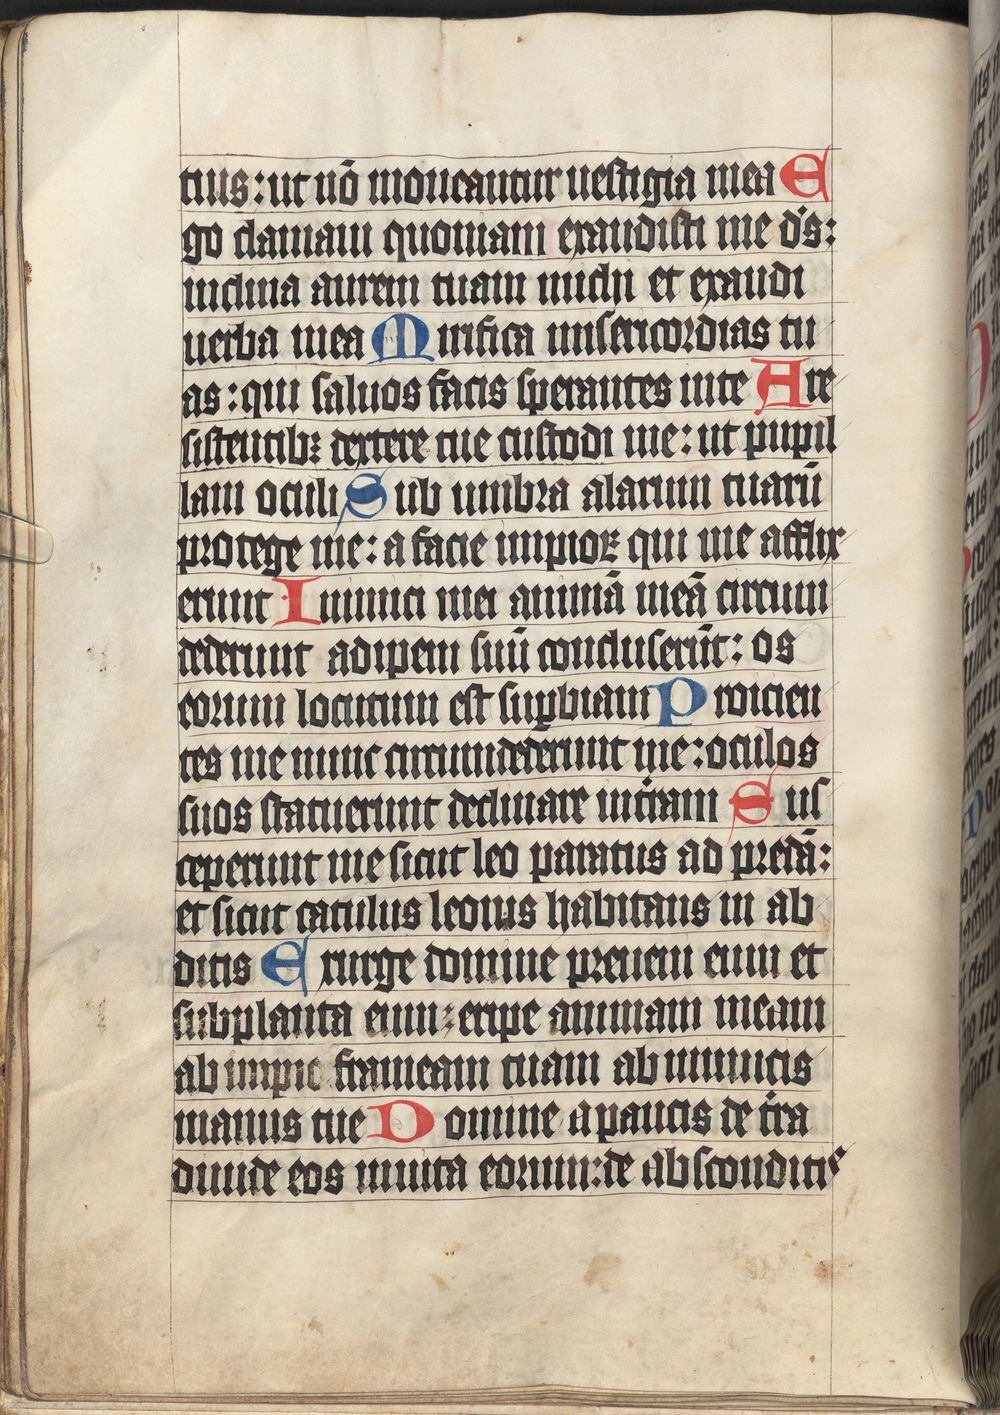 tuis: ut nō moueantur uestigia mea E
go clamaui quoniam exaudisti me ds̄:
inclina aurem tuam michi et exaudi
uerba mea Mirifica misericordias tu
as: qui saluos facis sperantes inte A re
sistentibꝫ dextere tue custodi me: ut pupil
lam oculi Sub umbra alarum tuarū
protege me: a facie impioꝝ qui me afflix
erunt Inimici mei animā meā circum
dederunt adipem suū concluserūt: os
eorum locutum est suꝑbiam Proicien
tes me nunc circumdederunt me: oculos
suos statuerunt declinare in tr̄am Sus
ceperunt me sicut leo paratus ad predā:
et sicut catulus leonis habitans in ab
ditis Exurge domine preueni eum et
subplanta eum: eripe animam meam
ab impio frameam tuam ab inimicis
manus tue Domine a paucis de tr̄a
diuide eos inuita eorum: de absconditis